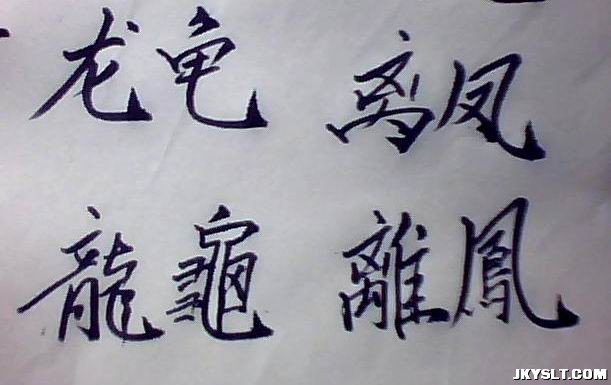 龙龟 离凤
龍龜 離鳳
JKYSLT.COM